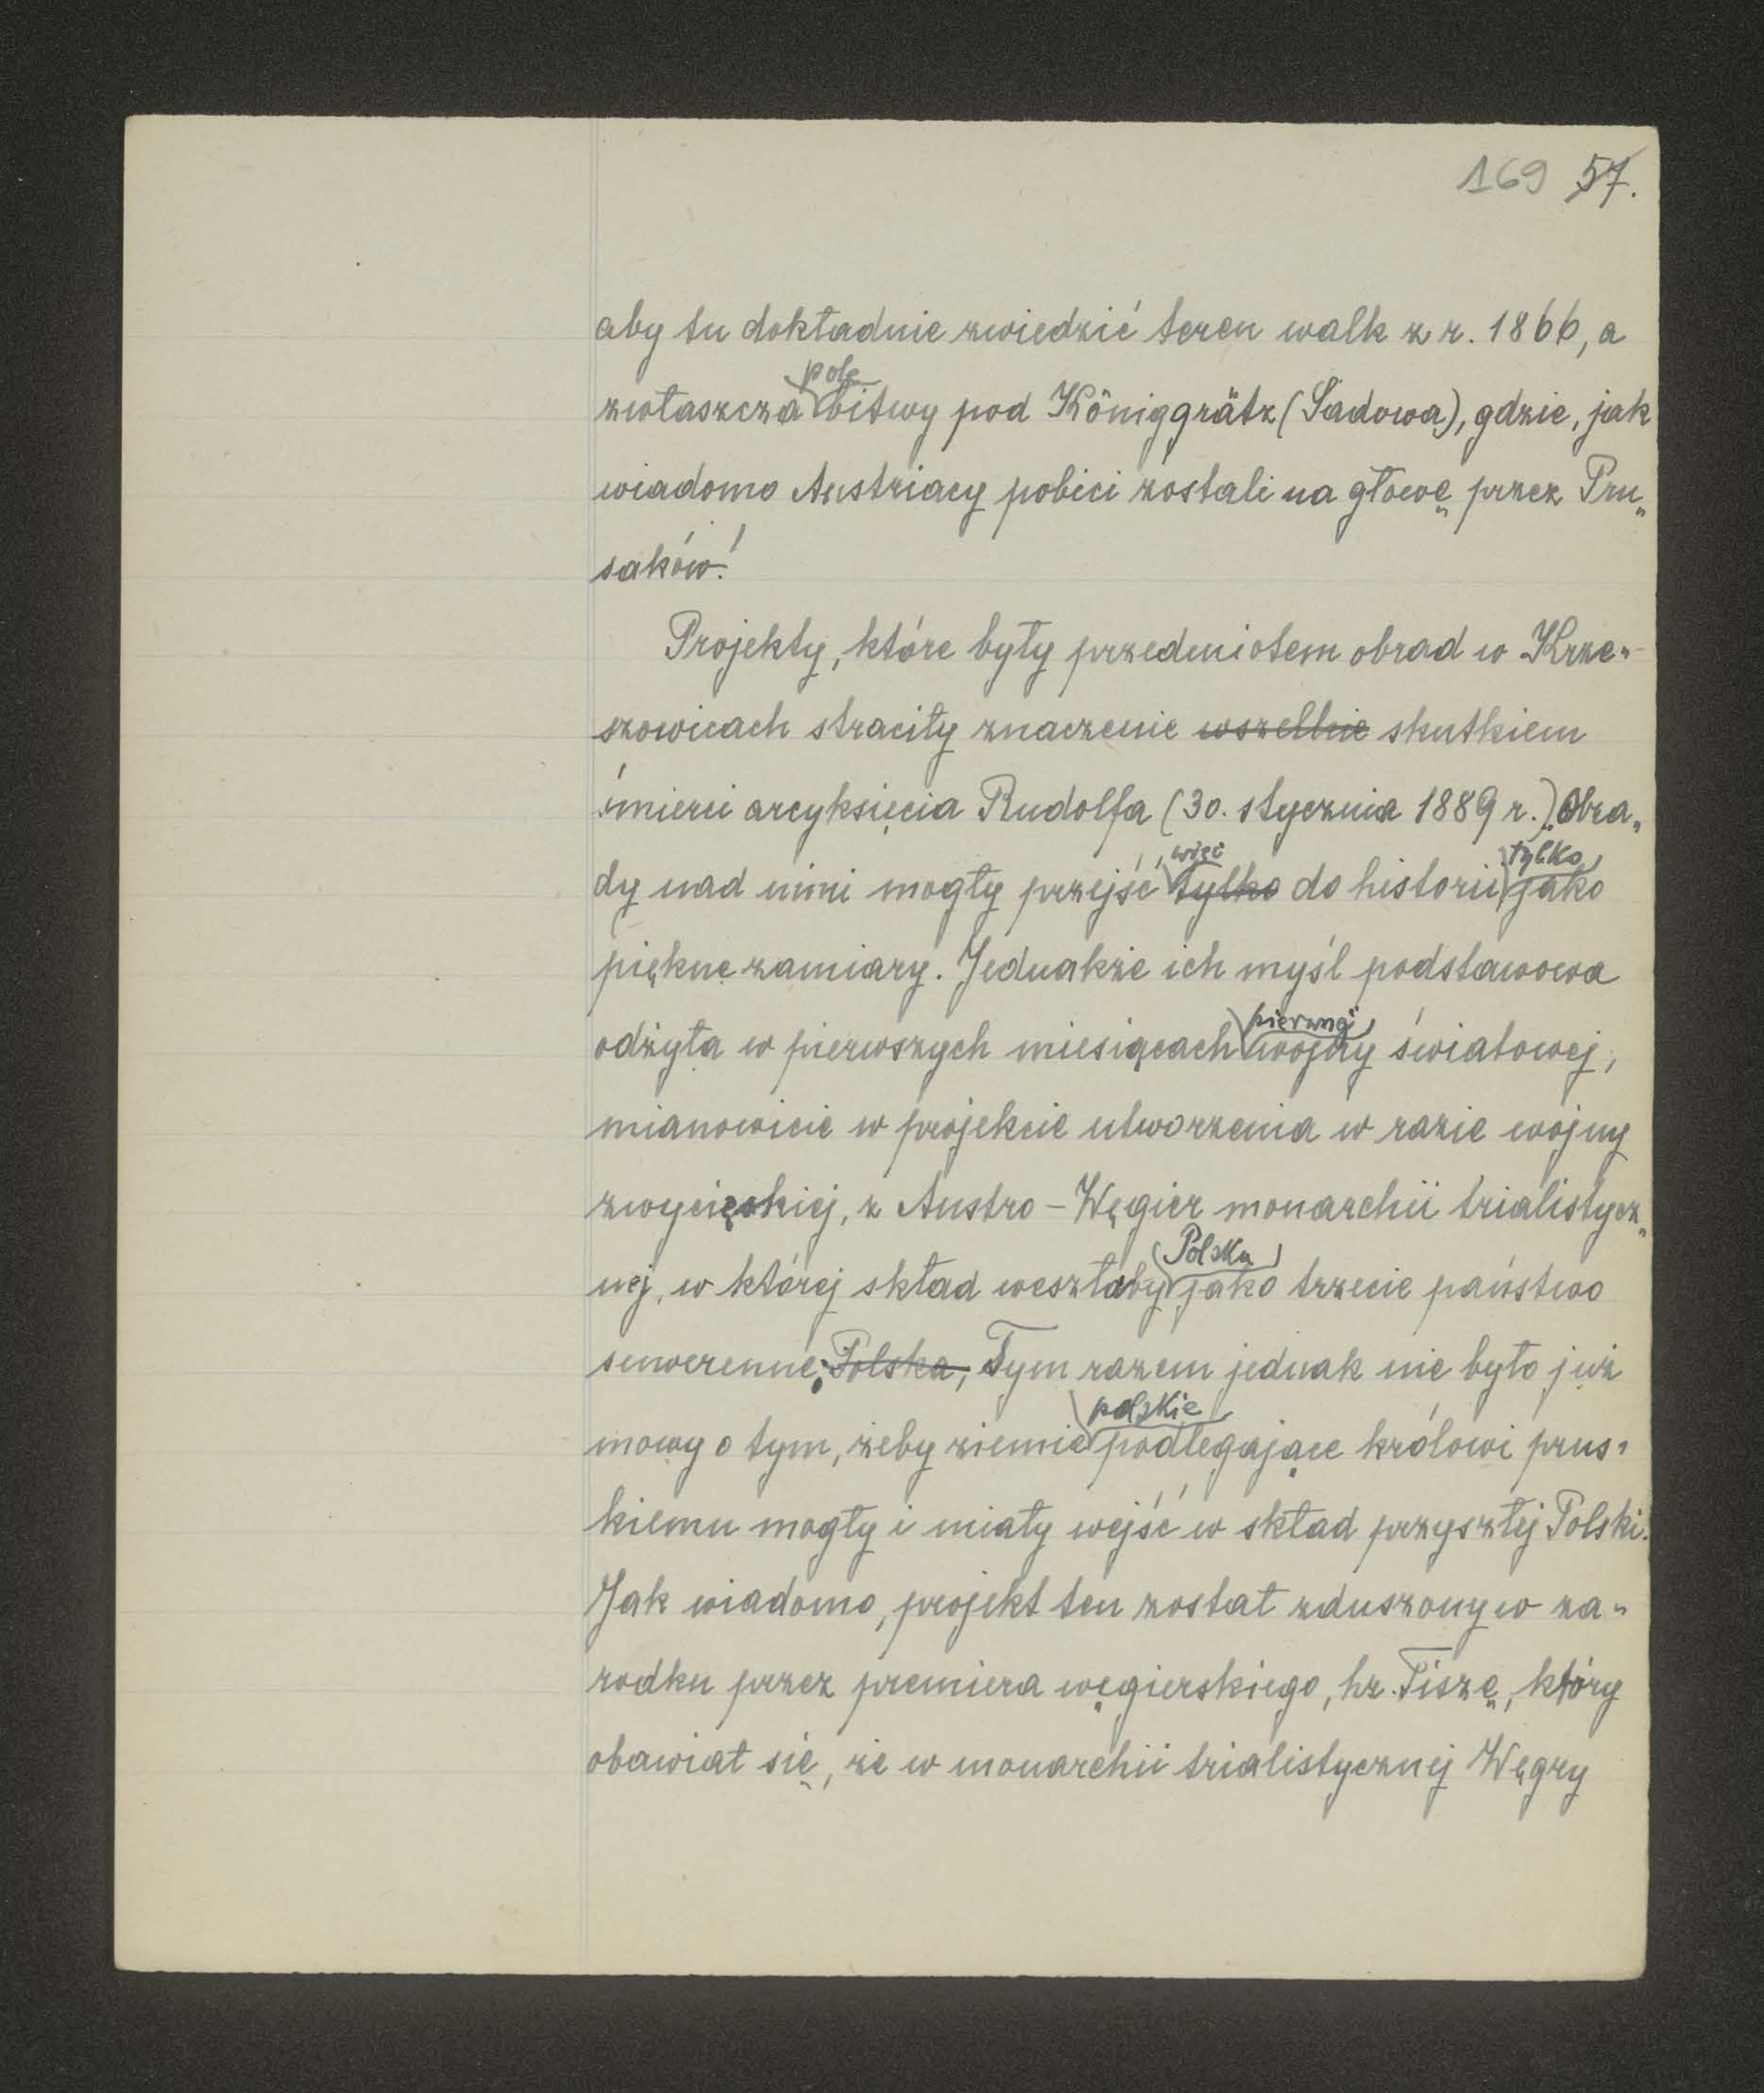 169 57.
aby tu dokładnie zwiedzić teren walk z r. 1866, a
zwłaszcza pole bitwy pod Königgrätz (Sadowa), gdzie, jak
wiadomo Austriacy pobici zostali na głowę przez Pru„
saków!
Projekty, które były przedmiotem obrad w Krze„
szowicach straciły znaczenie wszelkie skutkiem
śmierci arcyksięcia Rudolfa (30. stycznia 1889 r.). Obra„
dy nad nimi mogły przejść, więc tylko do historii tylko jako
piękne zamiary. Jednakże ich myśl podstawowa
odżyła w pierwszych miesiącach pierwszej wojny światowej,
mianowicie w projekcie utworzenia w razie wojny
zwycięskiej, z Austro-Węgier monarchii trialistycz„
nej, w której skład weszłaby Polska jako trzecie państwo
suwerenne; Polska, Tym razem jednak nie było już
mowy o tym, żeby ziemie polskie podlegające królowi prus„
kiemu mogły i miały wejść w skład przyszłej Polski.
Jak wiadomo, projekt ten został zduszony w za„
rodku przez premiera węgierskiego, hr. Tiszę, który
obawiał się, że w monarchii trialistycznej Węgry